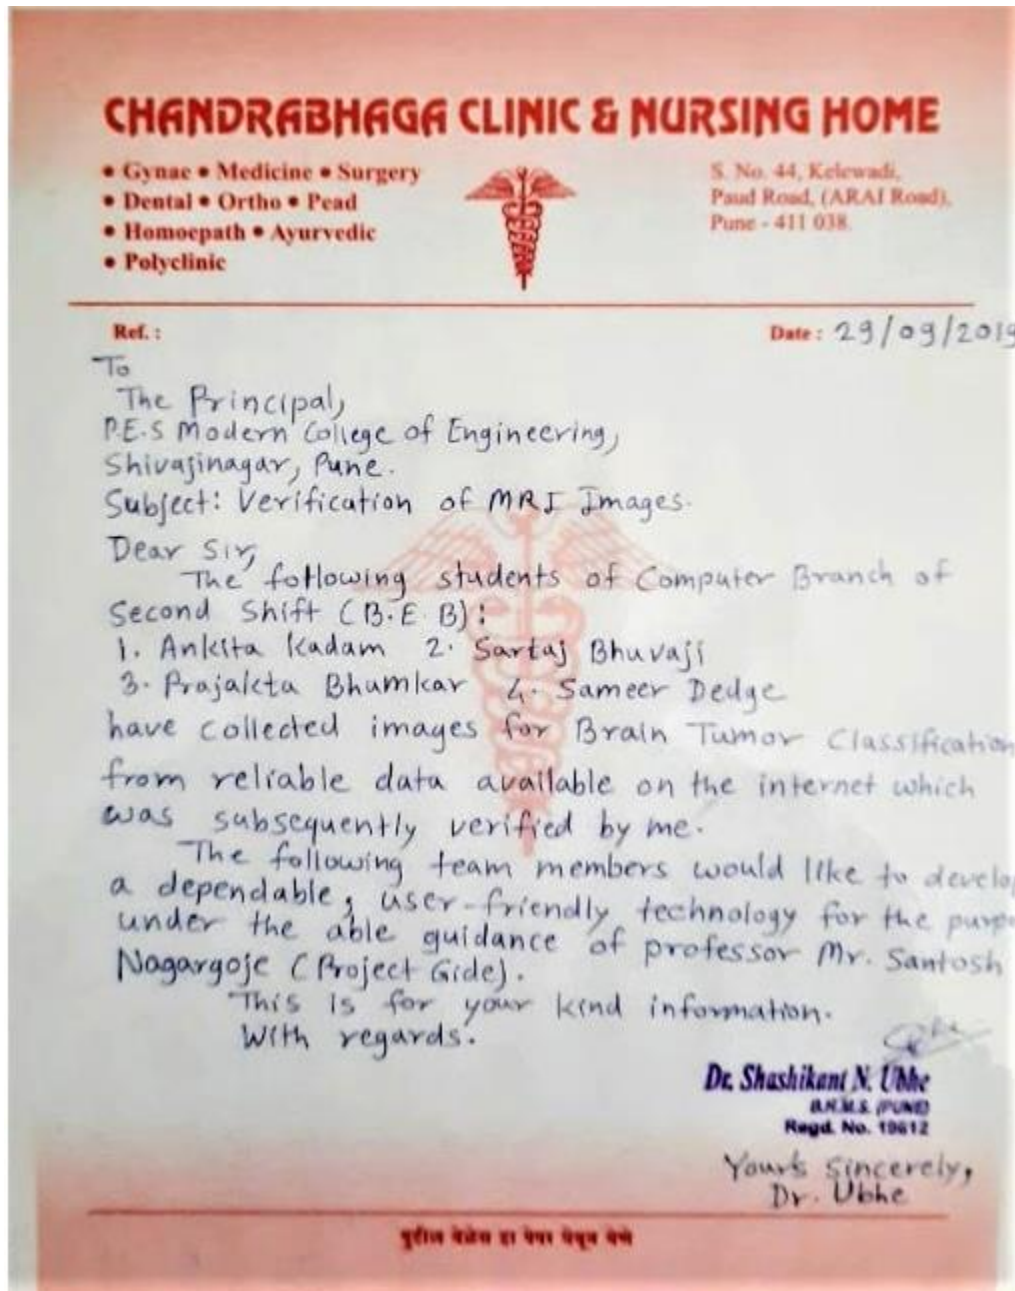 CHANDRABHAGA CLINIC & NURSING HOME
• Gynae • Medicine • Surgery
• Dental • Ortho • Pead
• Homoepath • Ayurvedic
• Polyclinic
S. No. 44, Kelewadi,
Paud Road, (ARAI Road),
Pune - 411 038.
Ref. :
Date : 29/09/2019
To
The Principal,
P.E.S Modern College of Engineering,
Shivajinagar, Pune.
Subject: Verification of MRI Images.
Dear Sir,
The following students of Computer Branch of
Second Shift (B.E. B):
1. Ankita Kadam 2. Sartaj Bhuvaji
3. Prajakta Bhumkar 4. Sameer Dedge
have collected images for Brain Tumor Classification
from reliable data available on the internet which
was subsequently verified by me.
The following team members would like to develop
a dependable, user-friendly technology for the purpo
under the able guidance of professor Mr. Santosh
Nagargoje (Project Gide).
This is for your kind information.
With regards.
Dr. Shashikant N. Ubhe
B.H.M.S. (PUNE)
Regd. No. 19612
Yours Sincerely,
Dr. Ubhe
पुढील वेळेस हा पेपर घेवून येणे